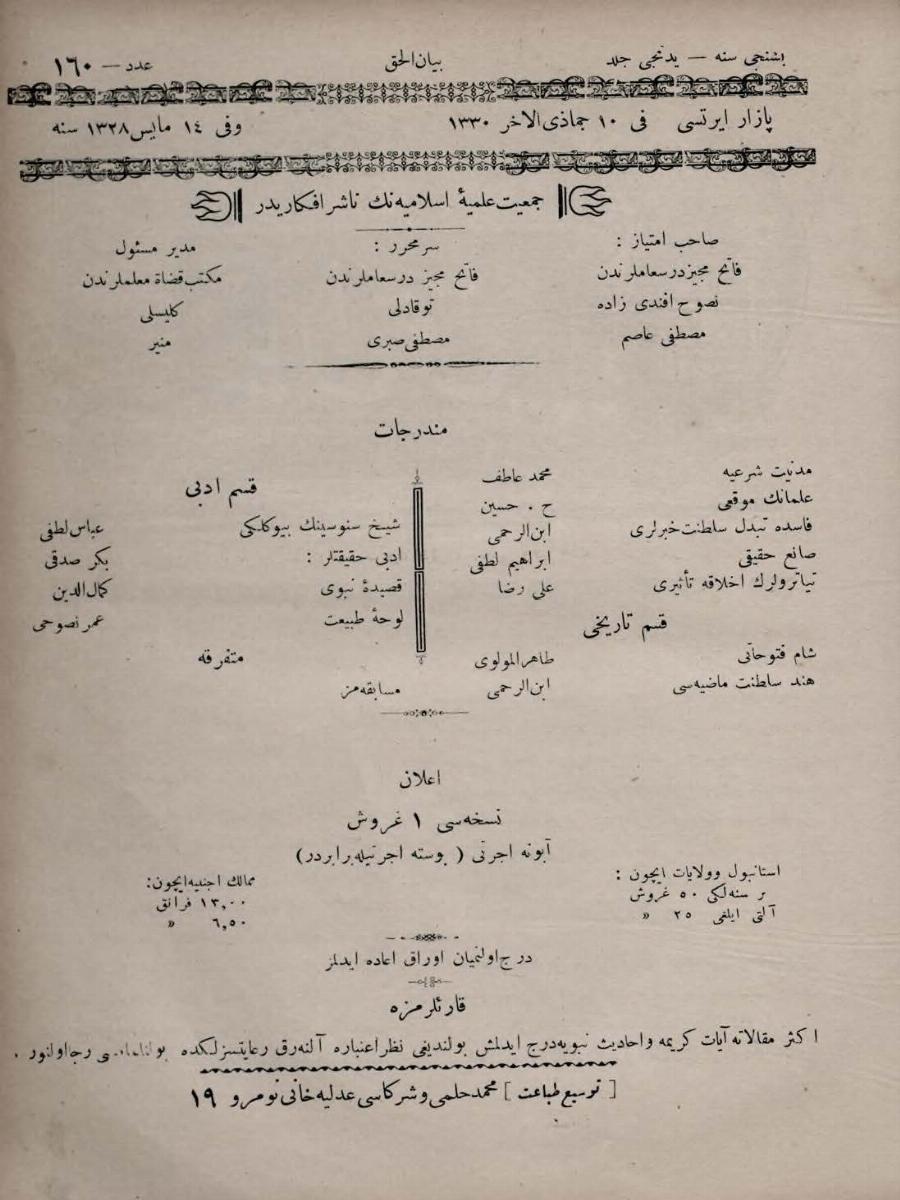 بشنجی سنه — یدنجی جلد
بیان‌الحق
عدد — ١٦٠
پازار ایرتسی فی ١٠ جماذی‌الاخر ١٣٣٠
وفی ١٤ مایس ١٣٢٨ سنه
جمعیت علمیهٔ اسلامیه‌نك ناشر افکاریدر
صاحب امتیاز :
فاتح مجیز درسعاملرندن
نصوح افندی زاده
مصطفی عاصم
سرمحرر :
فاتح مجیز درسعاملرندن
توقادلی
مصطفی صبری
مدیر مسئول
مکتب قضاة معلملرندن
کلیسلی
منیر
مندرجات
مدنیت شرعیه محمد عاطف
علمانك موقعی ح . حسین
فاسده تبدل سلطنت خبرلری ابن‌الرحمی
صانع حقیقی ابراهیم لطفی
تیاترولرك اخلاقه تأثیری علی رضا
قسم تاریخی
شام فتوحاتی طاهرالمولوی
هند سلطنت ماضیه‌سی ابن‌الرحمی
قسم ادبی
شیخ سنوسینك بیوکلکی عباس لطفی
ادبی حقیقتلر : بکر صدقی
قصیدهٔ نبوی کمال‌الدین
لوحهٔ طبیعت عمر نصوحی
متفرقه
مسابقه‌مز
اعلان
نسخه‌سی ١ غروش
آبونه اجرتی ( پوسته اجرتیله برابردر)
استانبول وولایات ایچون :
بر سنه‌لکی ٥٠ غروش
آلتی ایلغی ٢٥ »
ممالك اجنبیه ایچون:
١٣,٠٠ فرانق
٦,٥٠ »
درج اولنمیان اوراق اعاده ایدلمز
قارئلرمزه
اکثر مقالاته آیات کریمه واحادیث نبویه درج ایدلمش بولندیغی نظر اعتباره آلنه‌رق رعایتسزلکده رجا اولنور .
[ توسیع طباعت ] محمد حلمی وشرکاسی عدلیه خانی نومرو ١٩